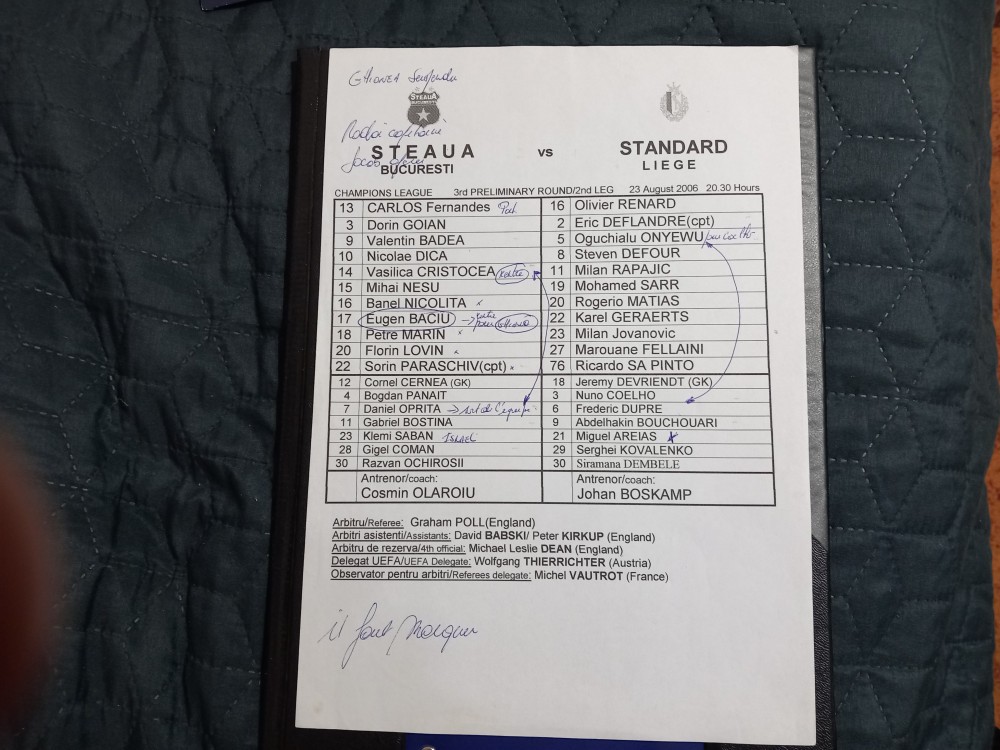 GHIONEA
STEAUA
BUCURESTI
STEAUA
BUCURESTI
vs
STANDARD
LIEGE
CHAMPIONS LEAGUE 3rd PRELIMINARY ROUND/2nd LEG 23 August 2006 20.30 Hours
13 CARLOS Fernandes 16 Olivier RENARD
3 Dorin GOIAN 2 Eric DEFLANDRE(cpt)
9 Valentin BADEA 5 Oguchialu ONYEWU
10 Nicolae DICA 8 Steven DEFOUR
14 Vasilica CRISTOCEA 11 Milan RAPAJIC
15 Mihai NESU 19 Mohamed SARR
16 Banel NICOLITA x 20 Rogerio MATIAS
17 Eugen BACIU 22 Karel GERAERTS
18 Petre MARIN x 23 Milan Jovanovic
20 Florin LOVIN x 27 Marouane FELLAINI
22 Sorin PARASCHIV(cpt) x 76 Ricardo SA PINTO
12 Cornel CERNEA (GK) 18 Jeremy DEVRIENDT (GK)
4 Bogdan PANAIT 3 Nuno COELHO
7 Daniel OPRITA 6 Frederic DUPRE
11 Gabriel BOSTINA 9 Abdelhakin BOUCHOUARI
23 Klemi SABAN ISRAEL 21 Miguel AREIAS x
28 Gigel COMAN 29 Serghei KOVALENKO
30 Razvan OCHIROSII 30 Siramana DEMBELE
Antrenor/coach: Antrenor/coach:
Cosmin OLAROIU Johan BOSKAMP
Arbitru/Referee: Graham POLL(England)
Arbitri asistenti/Assistants: David BABSKI/ Peter KIRKUP (England)
Arbitru de rezerva/4th official: Michael Leslie DEAN (England)
Delegat UEFA/UEFA Delegate: Wolfgang THIERRICHTER (Austria)
Observator pentru arbitri/Referees delegate: Michel VAUTROT (France)
il faut marquer